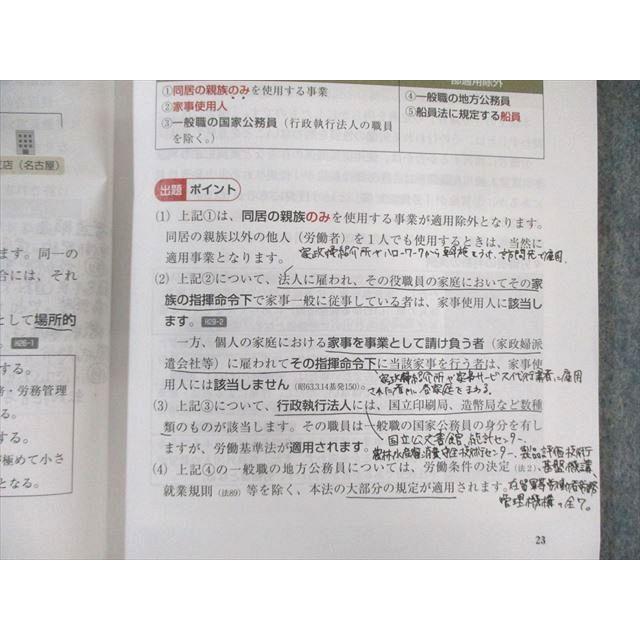 部適用除外
①同居の親族のみを使用する事業
②家事使用人
③一般職の国家公務員（行政執行法人の職員
を除く。）
④一般職の地方公務員
⑤船員法に規定する船員
工店（名古屋）
ます。同一の
合には、それ
として場所的
H26-1
する。
務・労務管理
る。
が極めて小さ
となる。
出題 ポイント
(1) 上記①は、同居の親族のみを使用する事業が適用除外となります。
同居の親族以外の他人（労働者）を１人でも使用するときは、当然に
適用事業となります。
(2) 上記②について、法人に雇われ、その役職員の家庭においてその家
族の指揮命令下で家事一般に従事している者は、家事使用人に該当し
ます。H29-2
一方、個人の家庭における家事を事業として請け負う者（家政婦派
遣会社等）に雇われてその指揮命令下に当該家事を行う者は、家事使
用人には該当しません（昭63.3.14基発150）。
(3) 上記③について、行政執行法人には、国立印刷局、造幣局など数種
類のものが該当します。その職員は一般職の国家公務員の身分を有し
ますが、労働基準法が適用されます。
国立公文書館、統計センター、
(4) 上記④の一般職の地方公務員については、労働条件の決定（法２）、
就業規則（法89）等を除く、本法の大部分の規定が適用されます。
管理機構の全7。
23